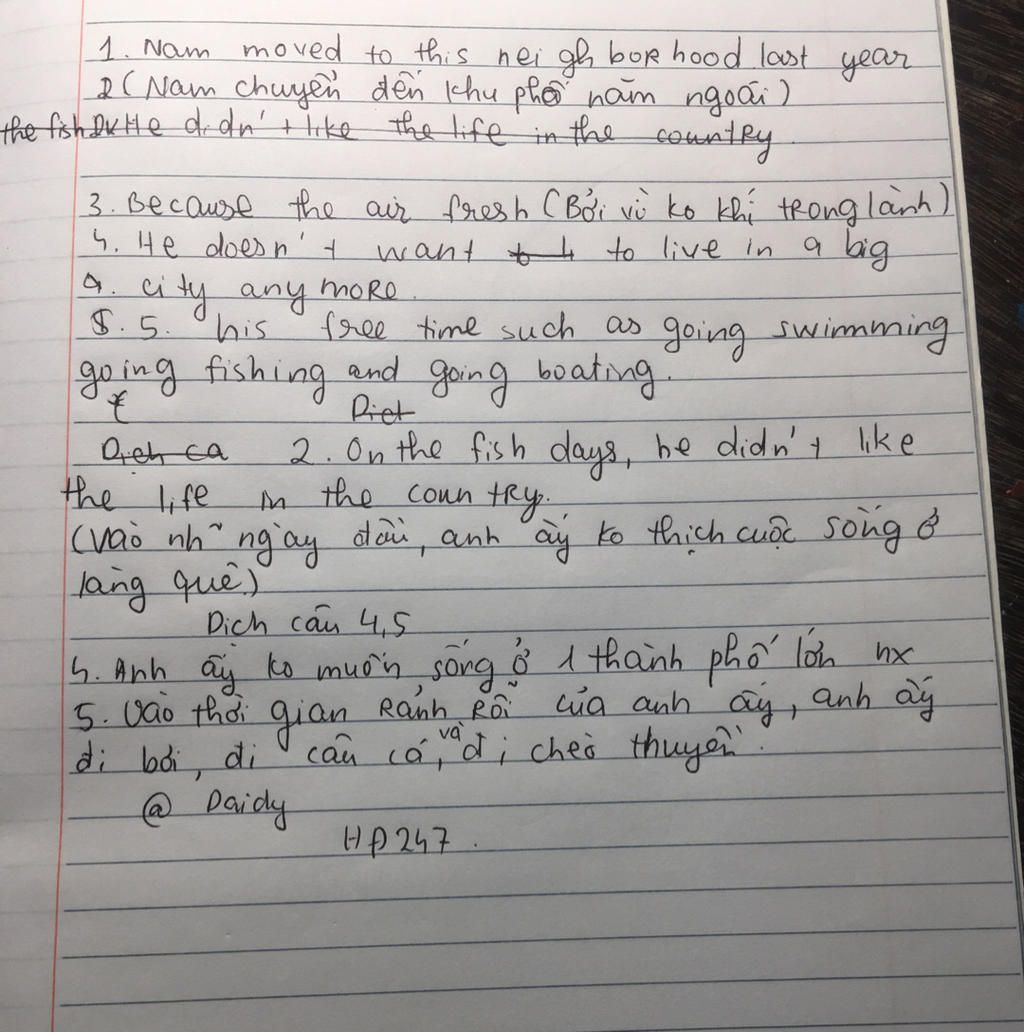 1. Nam moved to this nei gh boR hood last year
2 (Nam chuyển đến khu phố năm ngoái)
the fish He didn't like the life in the country
3. Because the air fresh (Bởi vì ko khí trong lành)
4. He doesn't want to to live in a big
a. city any more.
5. his free time such as going swimming
going fishing and going boating.
Diet
Dich ca 2. On the fish days, he didn't like
the life in the country.
(Vào nh~ ngày đầu, anh ấy ko thích cuộc sống ở
làng quê)
Dịch câu 4,5
4. Anh ấy ko muốn sống ở 1 thành phố lớn nx
5. Vào thời gian Rảnh Rỗi của anh ấy, anh ấy
đi bơi, đi câu cá, và đi chèo thuyền.
@ Daidy
HP247.